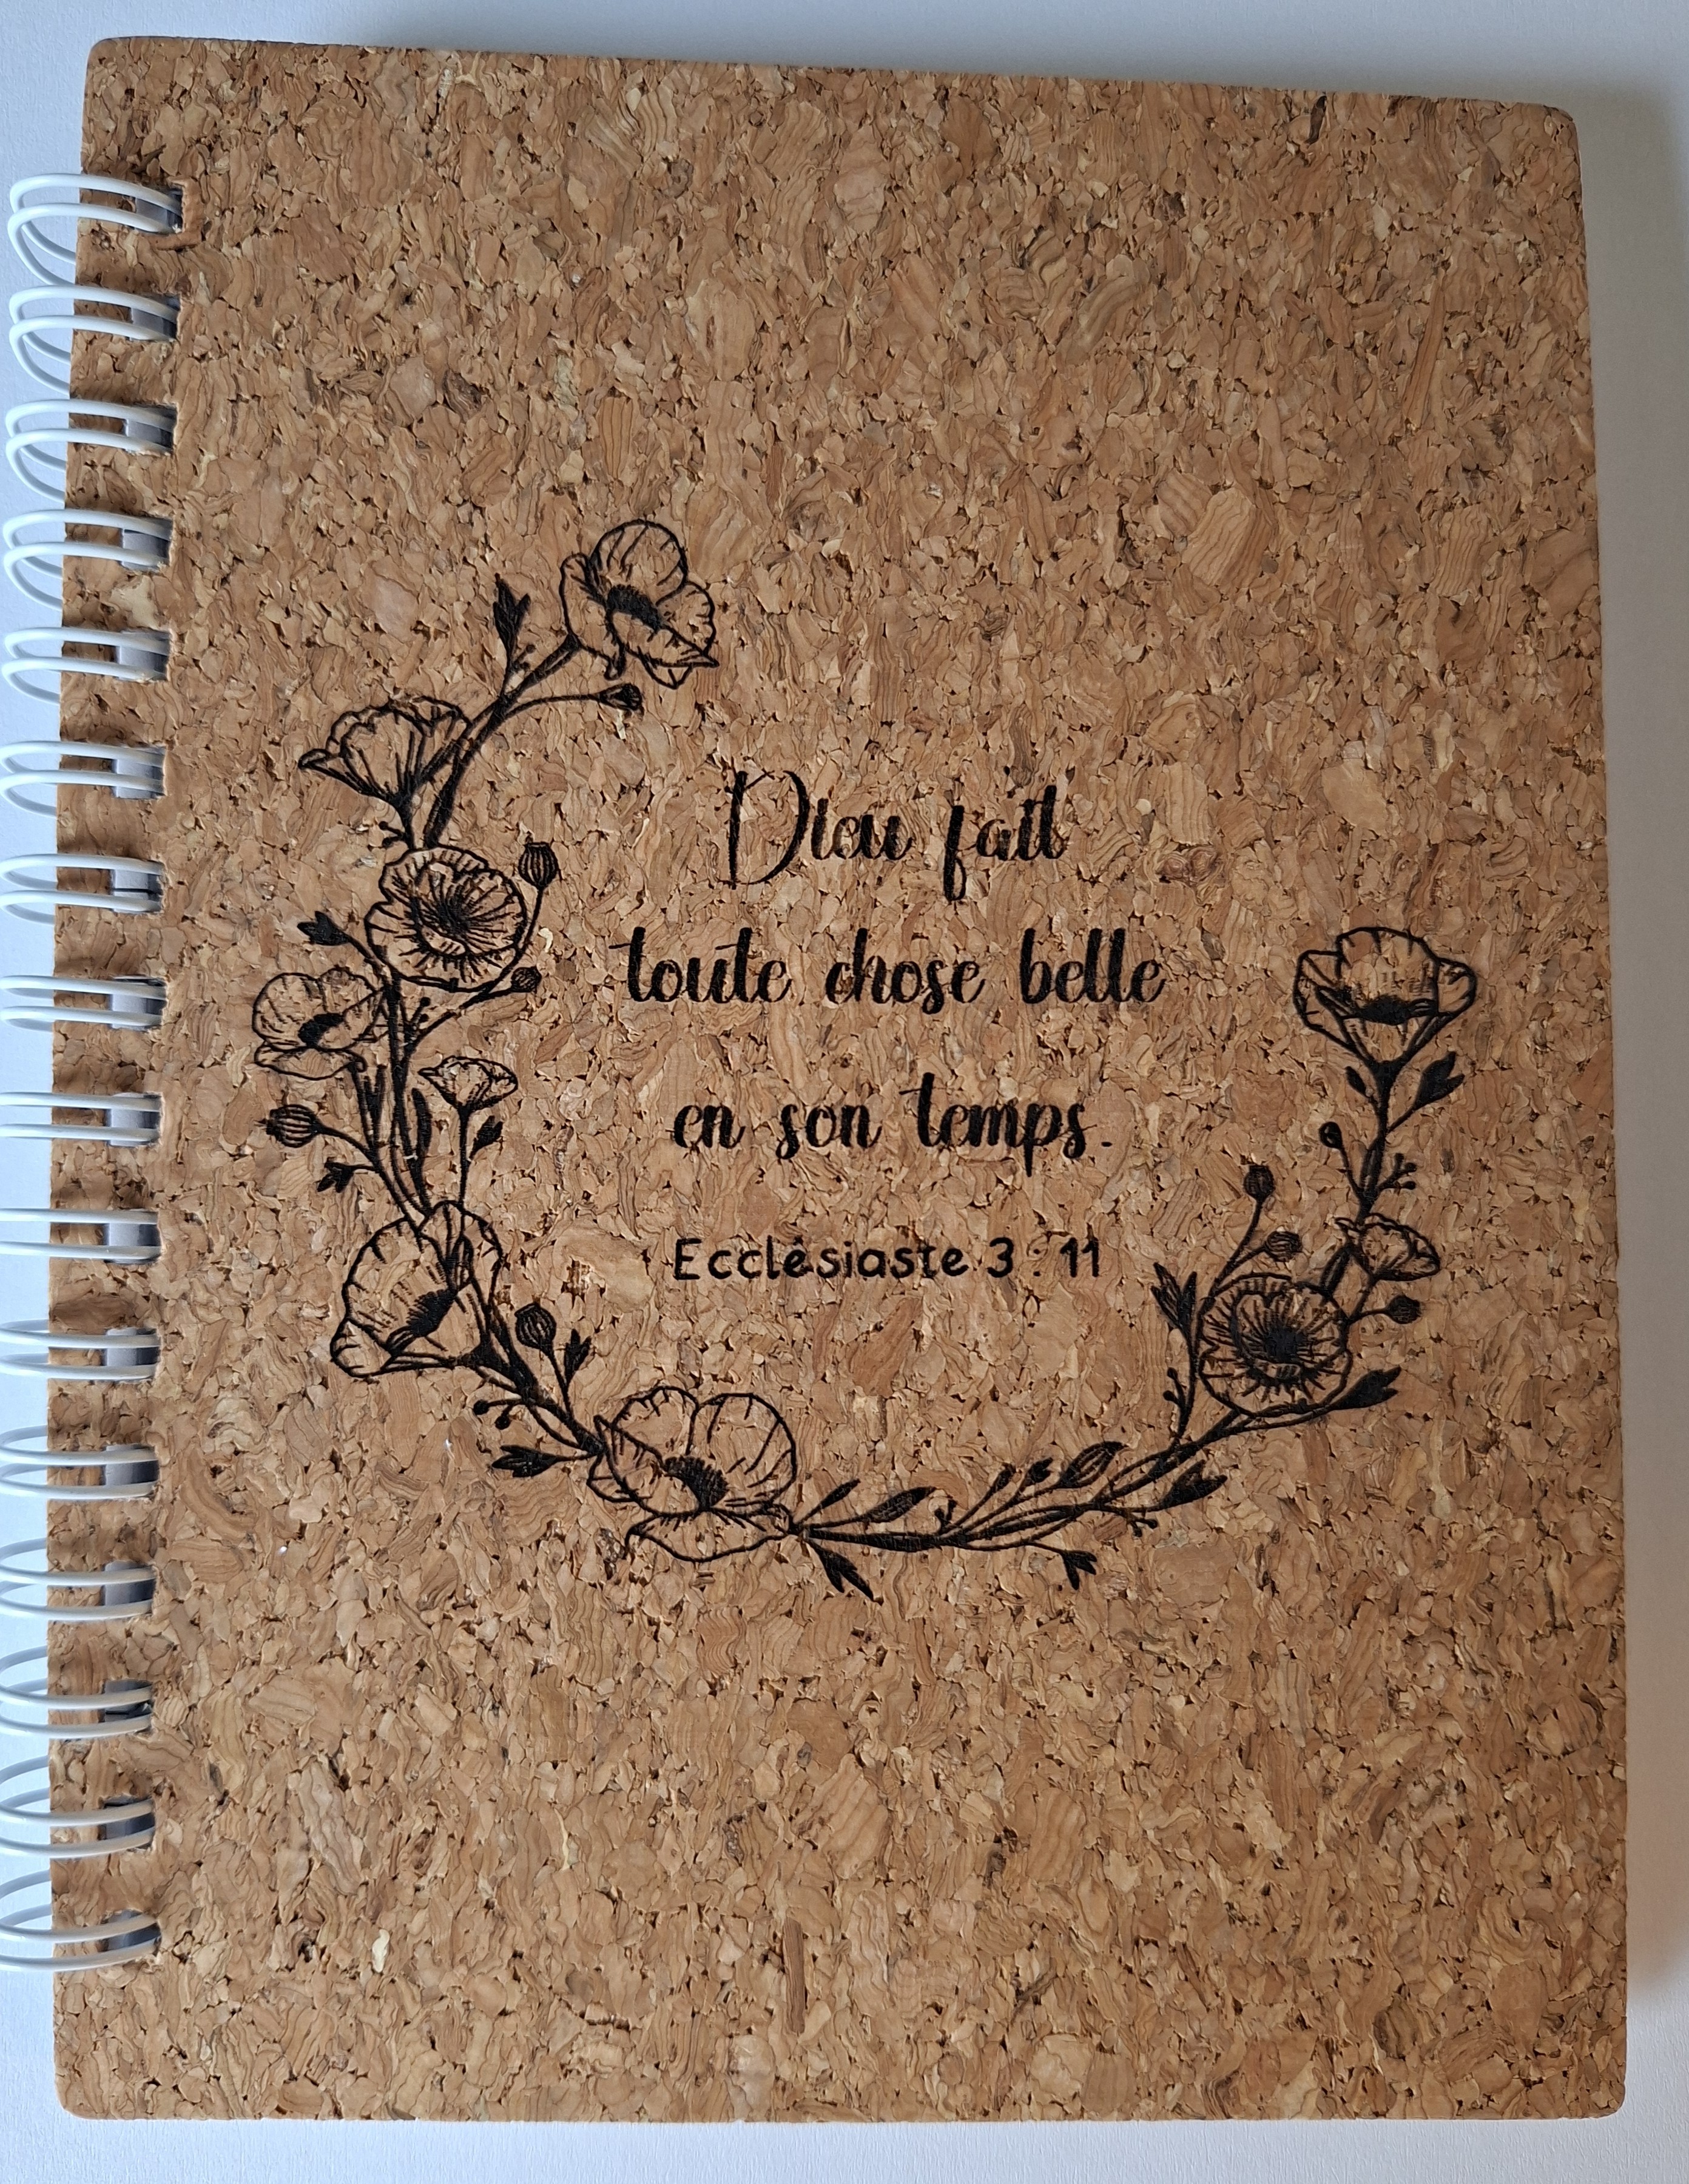 Dieu fait
toute chose belle
en son temps.
Ecclésiaste 3 : 11